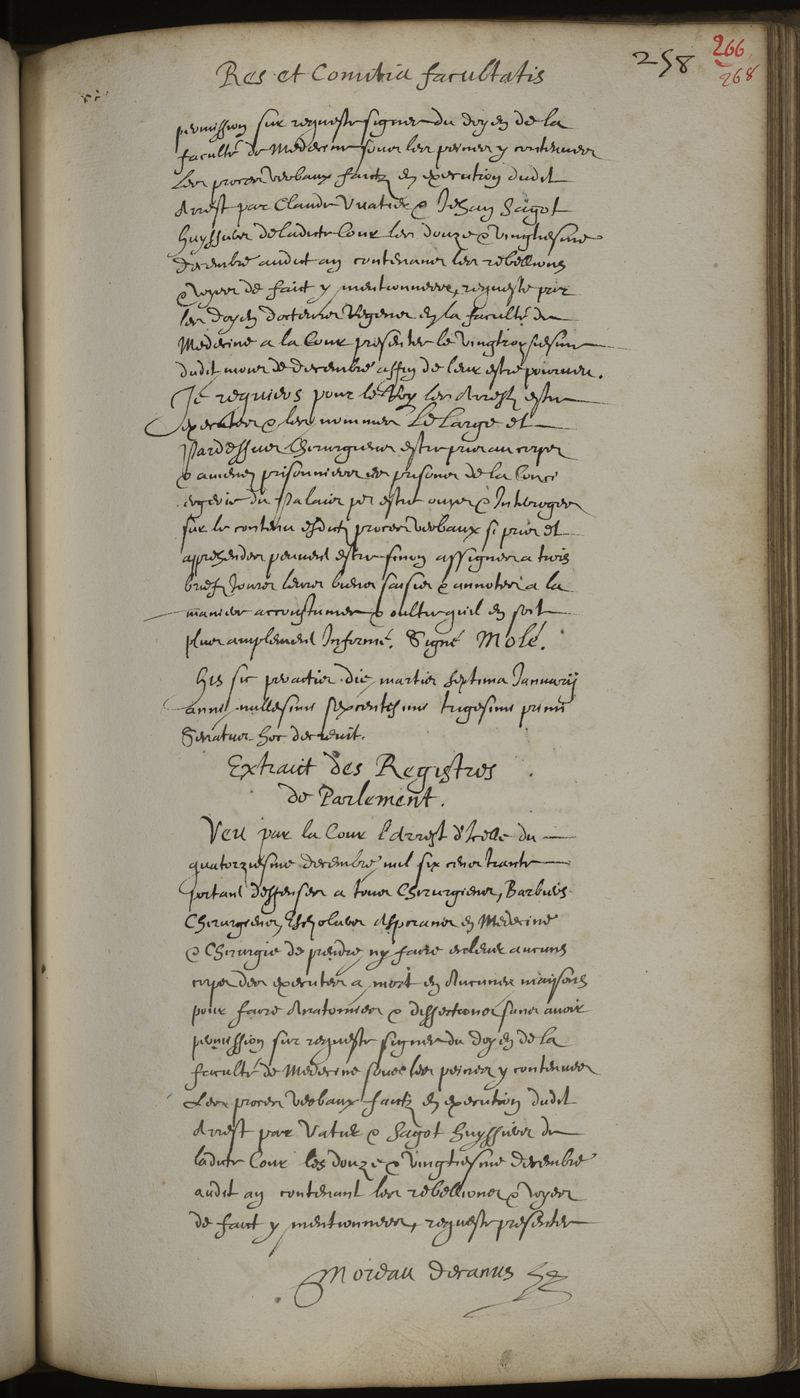 Res et Comitia facultatis
258
266
268
permission sur requeste signee du doyen de la
faculté de Medecine soubz les peines y contenues
Les procez verbaux faictz en execution dudit
Arrest par Claude Vuatier & Jehan Sagot
huyssiers de ladicte Cour les douze & vingtiesme
decembre audit an contenans les rebellions
& voyes de faict y mentionnees, requeste par
les doyen docteurs Regens en la faculté de
Medecine a la Cour presentee le vingtroysiesme
dudit mois de decembre affin de leur estre pourveu.
Je requiers pour le Roy les Arrestz estre
executez & les nommez Le Large et
Pardessus Chirurgiens estre pris au corps
& amenez prisonniers es prisons de la Conci
ergerie du Palais pour estre ouys & Interogez
sur le contenu esditz procez verbaux si pris et
apprehendez peuvent estre sinon assignez a trois
briefz Jours leurs biens saisis & annotez a la
maniere accoustumee & oultre qu'il en soit
plus amplement Informé. Signé Molé.
His sic peractis die martis septima Januarij
anni millesimi sexcentesimi trigesimi primi
Senatus hoc decrevit.
Extrait des Registres
de Parlement.
Veu par la Cour l'Arrest d'Icelle du
quatorziesme decembre mil six cens trante
portant deffenses a tous Chirurgiens, Barbiers
Chirurgiens, Escoliers Aspirans en Medecine
& Chirurgie de prendre ny faire enlever aucuns
corps des executez a mort en Aucunes maisons
pour faire Anatomies & dissections sans avoir
permission sur requeste signee du doyen de la
faculté de Medecine soubs les peines y contenues
Les procez verbaux faictz en execution dudit
Arrest par Vatier & Sagot huyssiers de
ladicte Cour les douze & vingtiesme decembre
audit an contenant les rebellions & voyes
de faict y mentionnees, requeste presentee
Moreau decanus